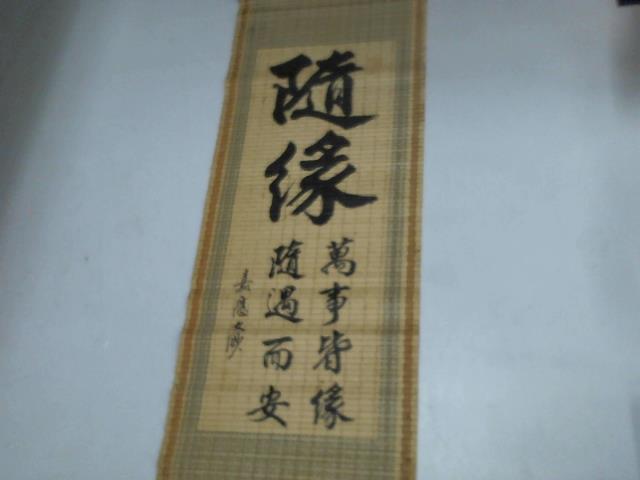 隨緣
萬事皆緣
隨遇而安